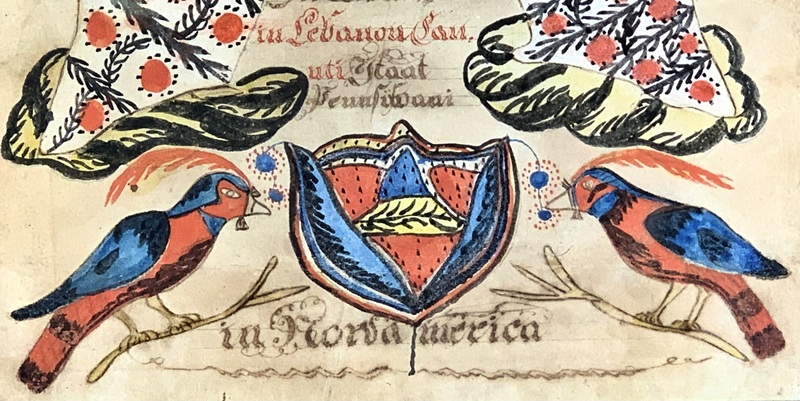 in Lebanon Caun,
uti Staat
Pennsilvani
in Nord america